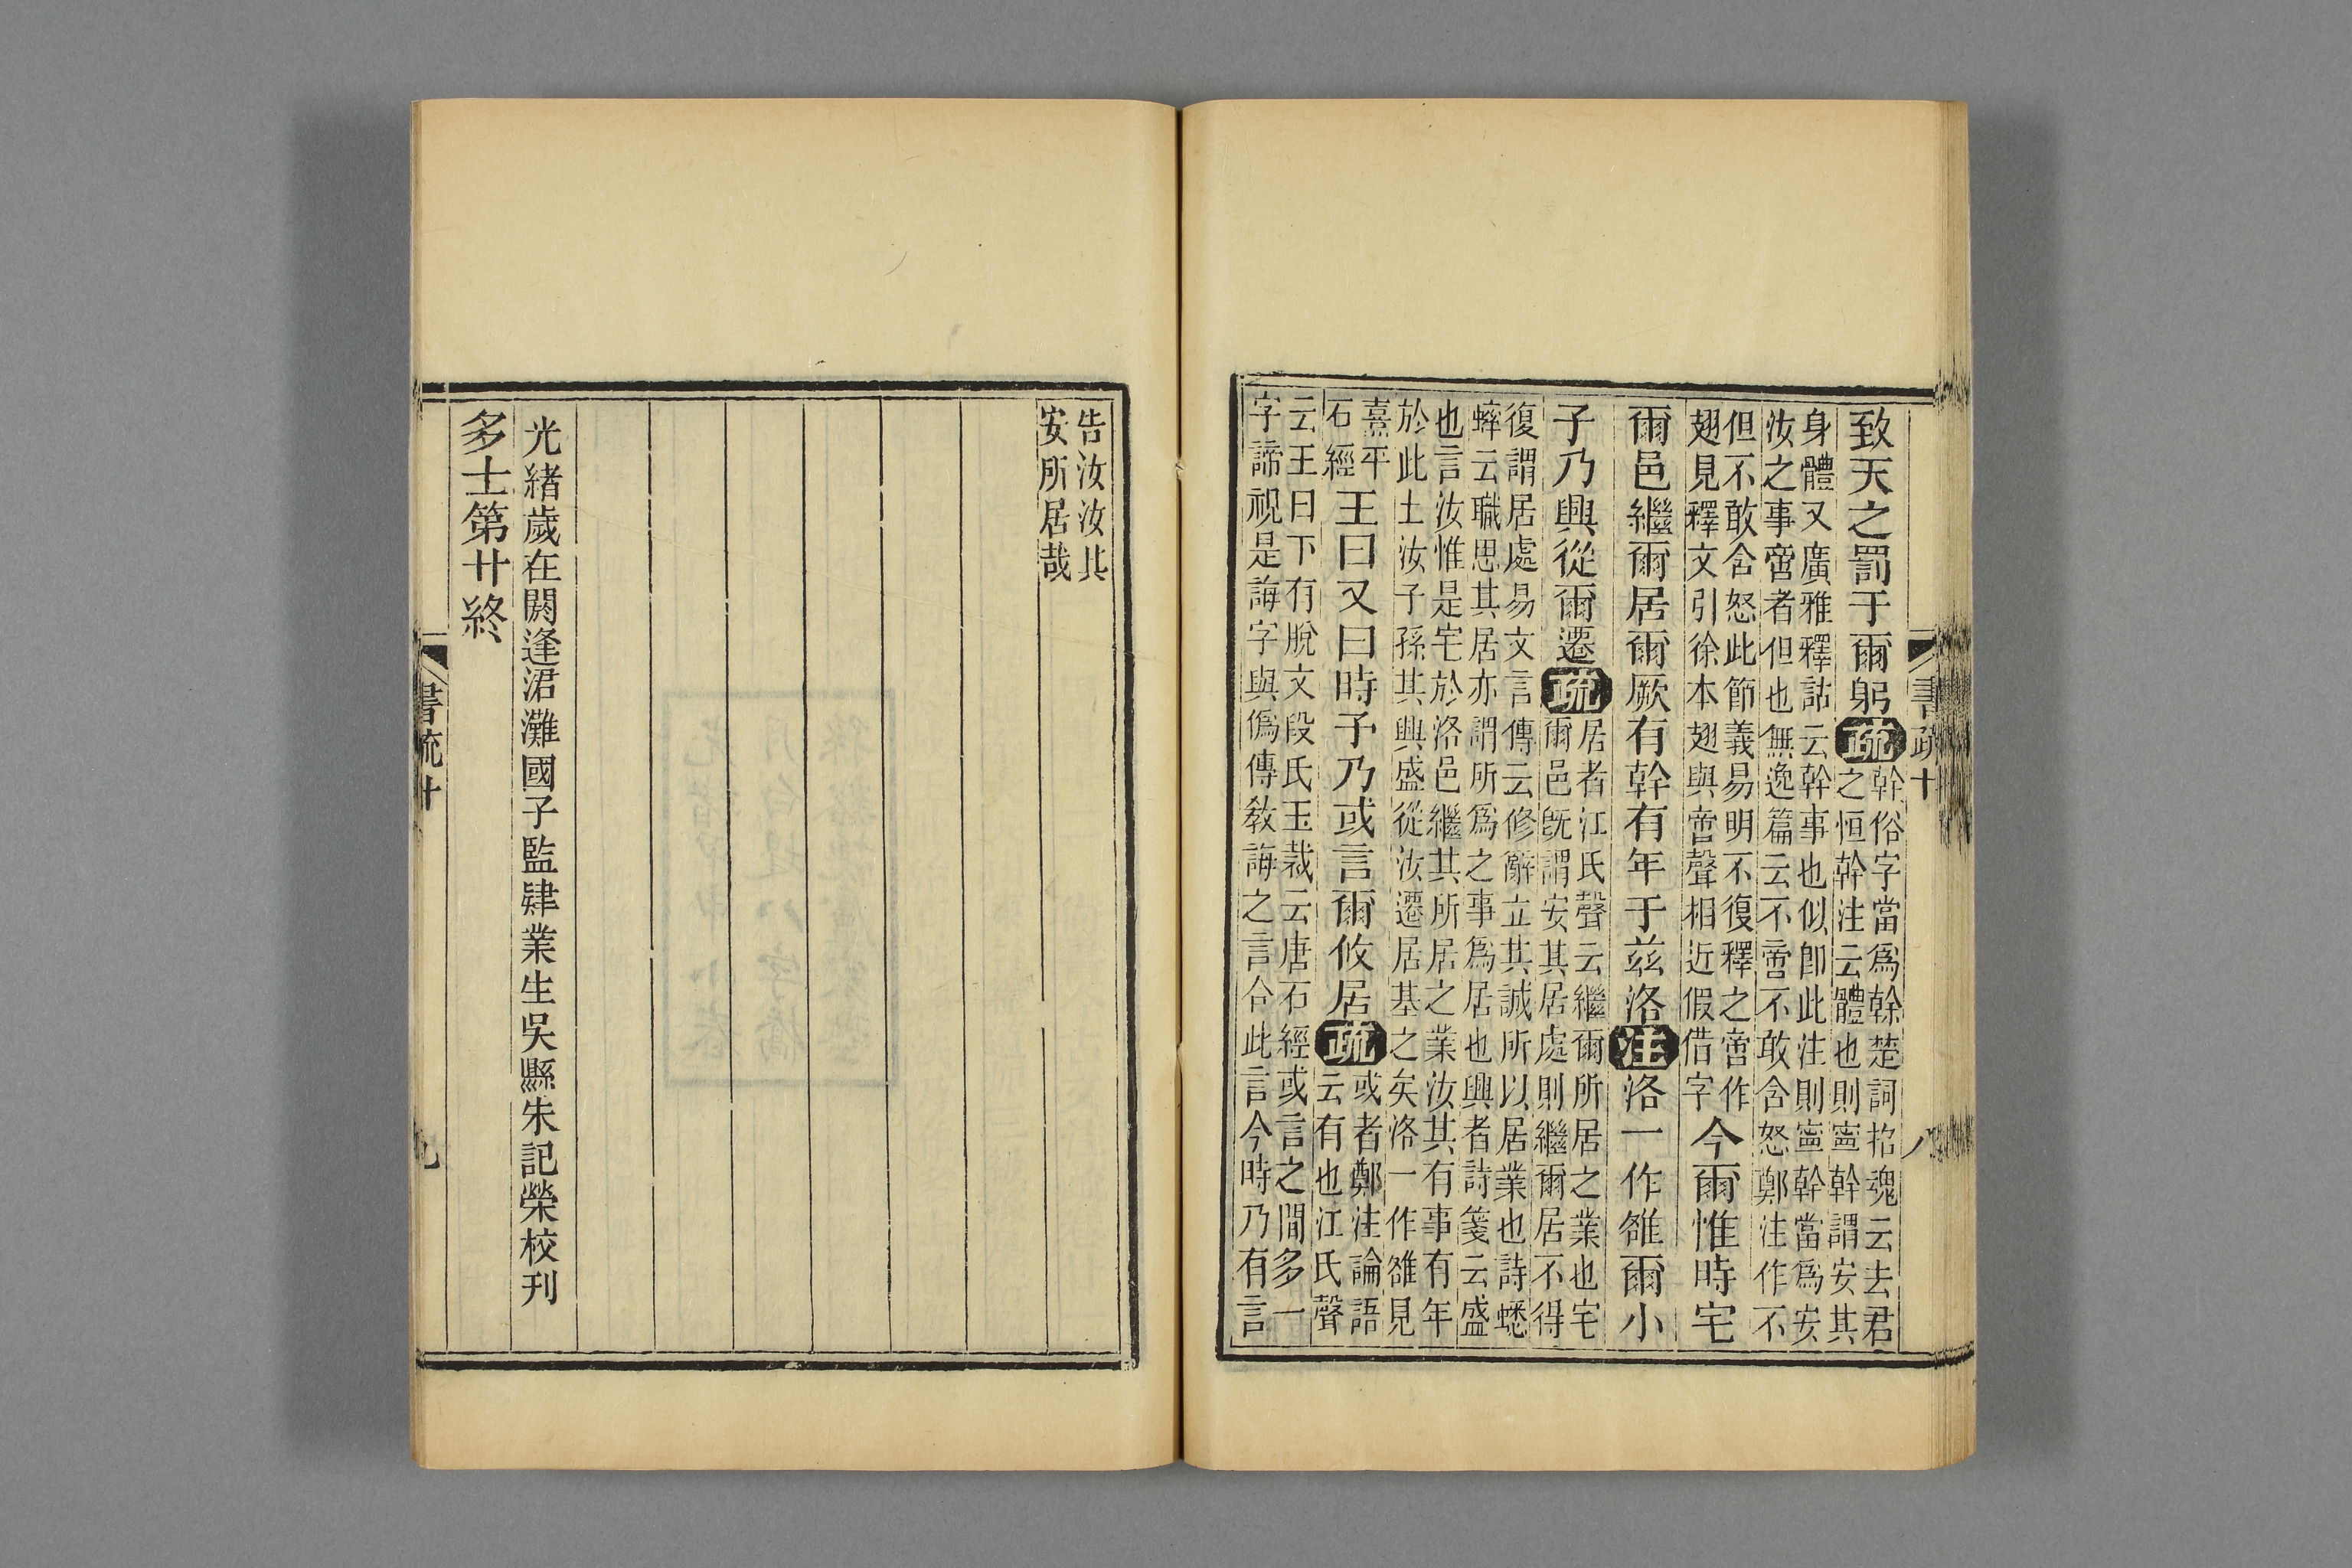 致天之罰于爾躬疏幹俗字當爲幹楚詞招魂云去君
之恒幹注云體也則寍幹謂安其
身體又廣雅釋詁云幹事也似卽此注則寍幹當爲安
汝之事啻者但也無逸篇云不啻不敢含怒鄭注作不
但不敢含怒此節義易明不復釋之啻作
翅見釋文引徐本翅與啻聲相近假借字今爾惟時宅
爾邑繼爾居爾厥有幹有年于兹洛注洛一作雒爾小
子乃興從爾遷疏居者江氏聲云繼爾所居之業也宅
爾邑旣謂安其居處則繼爾居不得
復謂居處易文言傳云修辭立其誠所以居業也詩蟋
蟀云職思其居亦謂所爲之事爲居也興者詩箋云盛
也言汝惟是宅於洛邑繼其所居之業汝其有事有年
於此土汝子孫其興盛從汝遷居基之矣洛一作雒見
熹平
石經王曰又曰時予乃或言爾攸居疏或者鄭注論語
云有也江氏聲
云王曰下有脫文段氏玉裁云唐石經或言之間多一
字諦視是誨字與僞傳敎誨之言合此言今時乃有言
書疏十
八
告汝汝其
安所居哉
光緒歲在閼逢涒灘國子監肄業生吳縣朱記榮校刊
多士第廿終
書疏廿
九